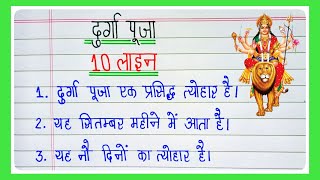 दुर्गा पूजा
10 लाइन
1. दुर्गा पूजा एक प्रसिद्ध त्योहार है।
2. यह सितम्बर महीने में आता है।
3. यह नौ दिनों का त्योहार है।